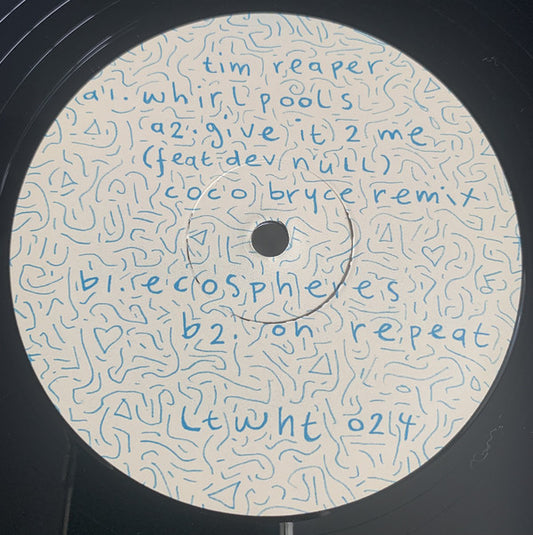 tim reaper
a1. whirlpools
a2. give it 2 me
(feat dev null)
coco bryce remix
b1. ecospheres
b2. on repeat
Ltwht 024